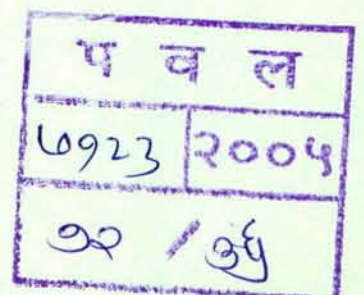 प व ल
७१२३ २००५
१२ / ३५